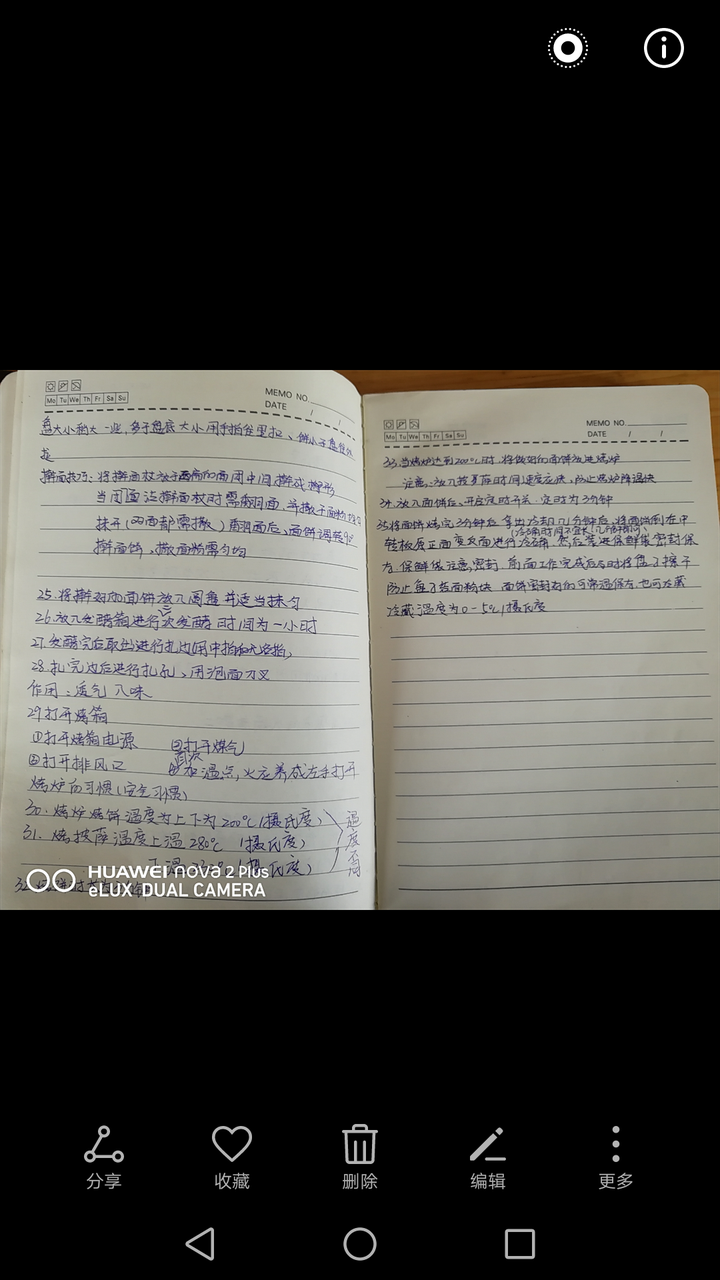 MEMO NO.
DATE / /
Mo Tu We Th Fr Sa Su
盘大小稍大一些,多于盘底大小用手指往里拉、
是
擀面技巧:将擀面杖放于面前的面团中间擀成椭形
当团面沾擀面杖时需翻面,并撒干面粉
抹开(两面都需撒)翻面后、面饼调转90°
擀面饼,撒面粉需匀均
25.将擀好的面饼放入圆盘并适当抹匀
26.放入发酵箱进行次发酵 时间为一小时
27.发酵完后取出进行扎边用中指和大
28.扎完边后进行扎孔、用泡面刀叉
作用:透气 入味
29打开烤箱
①打开烤箱电源 ③打开煤气
②打开排风口 ④加温点,火 养成左手打开
烤炉的习惯(安全习惯)
30.烤炉烤饼温度为上下为200℃(摄氏度)
31.烤披萨温度上温280℃(摄氏度)
(摄氏度)
温度不同
32.
HUAWEI nova 2 Plus
eLUX DUAL CAMERA
MEMO NO.
DATE / /
Mo Tu We Th Fr Sa Su
33.当烤炉达到200℃时.将做好的面饼放进烤炉
注意:放入披萨饼时间速度应快,防止烤炉降温快
34.放入面饼后、开启定时开关.定时为3分钟
35.将面饼烤完3分钟后拿出冷却几分钟后,将面饼倒在中
(冷却时间不宜长
转板原正面变反面进行冷却,然后装进保鲜袋密封保
存.保鲜袋注意密封 前面工作完成后及时将盘子擦干
防止盘子有面粉块 面饼密封好的可常温保存.也可冷藏
冷藏温度为0-5℃/摄氏度
分享
收藏
删除
编辑
更多